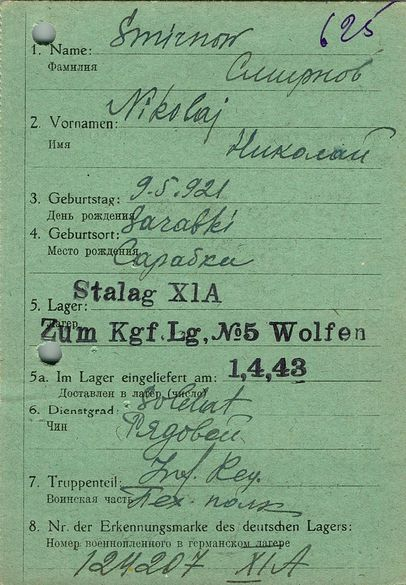 625
1. Name: Smirnow
Фамилия Смирнов
2. Vornamen: Nikolaj
Имя Николай
3. Geburtstag: 9.5.921
День рождения
4. Geburtsort: Sarabki
Место рождения Сарабки
5. Lager: Stalag XIA
Лагерь
Zum Kgf.Lg, №5 Wolfen
5a. Im Lager eingeliefert am: 1,4,43
Доставлен в лагерь (число)
6. Dienstgrad: Soldat
Чин Рядовой
7. Truppenteil: Inf. Reg.
Воинская часть Пех. полк
8. Nr. der Erkennungsmarke des deutschen Lagers:
Номер военнопленного в германском лагере
124207 XIA